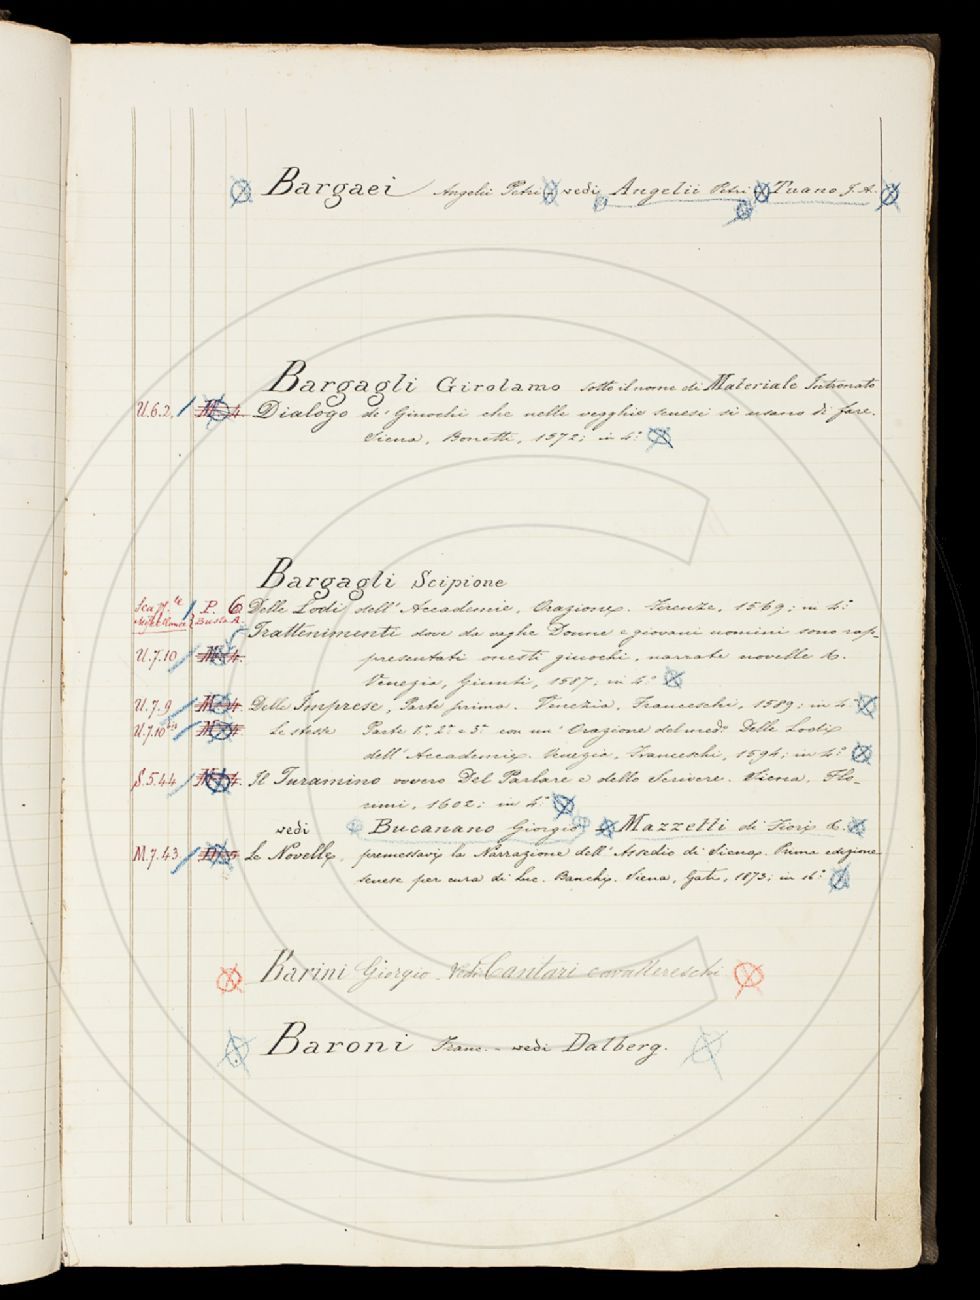 Bargaei Angelii Petri - vedi Angelii Petri e Tuano J. A.
Bargagli Girolamo sotto il nome di Materiale Intronato
U.6.2. M 4. Dialogo de' Giuochi che nelle vegghie senesi si usano di fare.
Siena, Bonetti, 1572; in 4.°
Bargagli Scipione
P. 6 Delle Lodi dell'Accademie, Orazione. Firenze, 1569; in 4.°
Busta A. Trattenimenti dove da vaghe Donne e giovani uomini sono rap-
U.7.10 M 4. presentati onesti giuochi, narrate novelle &.
Venezia, Giunti, 1587; in 4.°
U.7.9 M 4. Delle Imprese, Parte prima. Venezia, Franceschi, 1589; in 4.°
U.7.10 M 4. Le stesse Parte 1.ª 2.ª e 3.ª con un' Orazione del med.° Delle Lodi
dell'Accademie. Venezia, Franceschi, 1594; in 4.°
S.5.44 M 4. Il Turamino ovvero Del Parlare e dello Scrivere. Siena, Flo-
rimi, 1602; in 4.°
vedi Bucanano Giorgio e Mazzetti di Fiori &.
M.7.43. Le Novelle, premessavi la Narrazione dell'Assedio di Siena. Prima edizione
senese per cura di Luc. Banchi. Siena, Gati, 1873; in 16.°
Barini Giorgio Vedi Cantari cavallereschi
Baroni Franc. - vedi Dalberg.